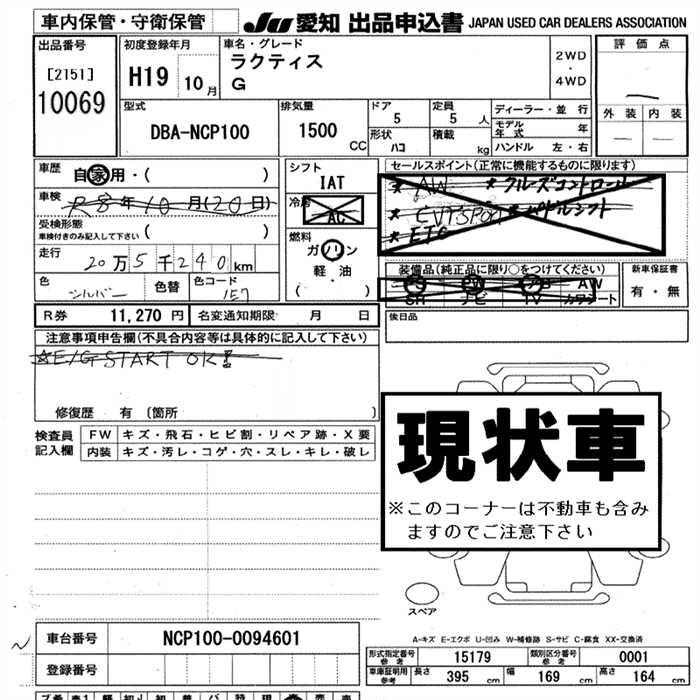 車内保管・守衛保管
JU 愛知 出品申込書 JAPAN USED CAR DEALERS ASSOCIATION
出品番号
[2151]
10069
初度登録年月
H19 10月
車名・グレード
ラクティス
G
2WD
・
4WD
評価点
外装 内装
型式
DBA-NCP100
排気量
1500 CC
ドア
5
定員
5 人
形状
ハコ
積載
kg
ディーラー・並行
モデル年式 年
ハンドル 左・右
車歴
自家用・( )
車検
R8年10月(20日)
受検形態
車検付きのみ記入して下さい ( )
走行
20万5千240km
色
シルバー
色替
色コード
1E7
シフト
IAT
冷房
AC
燃料
ガソリン
軽・油
( )
セールスポイント(正常に機能するものに限ります)
★ AW ★クルーズコントロール
★ CVTSPORT ★パドルシフト
★ ETC
装備品(純正品に限り○をつけてください)
PS PW AB AW
SR ナビ TV カワシート
新車保証書
有・無
R券 11,270円
名変通知期限 月 日
後日品
注意事項申告欄(不具合内容等は具体的に記入して下さい)
☆E/G START OK!
修復歴 有 〔箇所 〕
検査員記入欄
FW キズ・飛石・ヒビ割・リペア跡・X要
内装 キズ・汚レ・コゲ・穴・スレ・キレ・破レ
現状車
※このコーナーは不動車も含み
ますのでご注意下さい
スペア
A-キズ E-エクボ U-凹み W-補修跡 S-サビ C-腐食 XX-交換済
車台番号
NCP100-0094601
登録番号
形式指定番号 参考
15179
類別区分番号 参考
0001
車庫証明用 参考
長さ 395 cm
幅 169 cm
高さ 164 cm